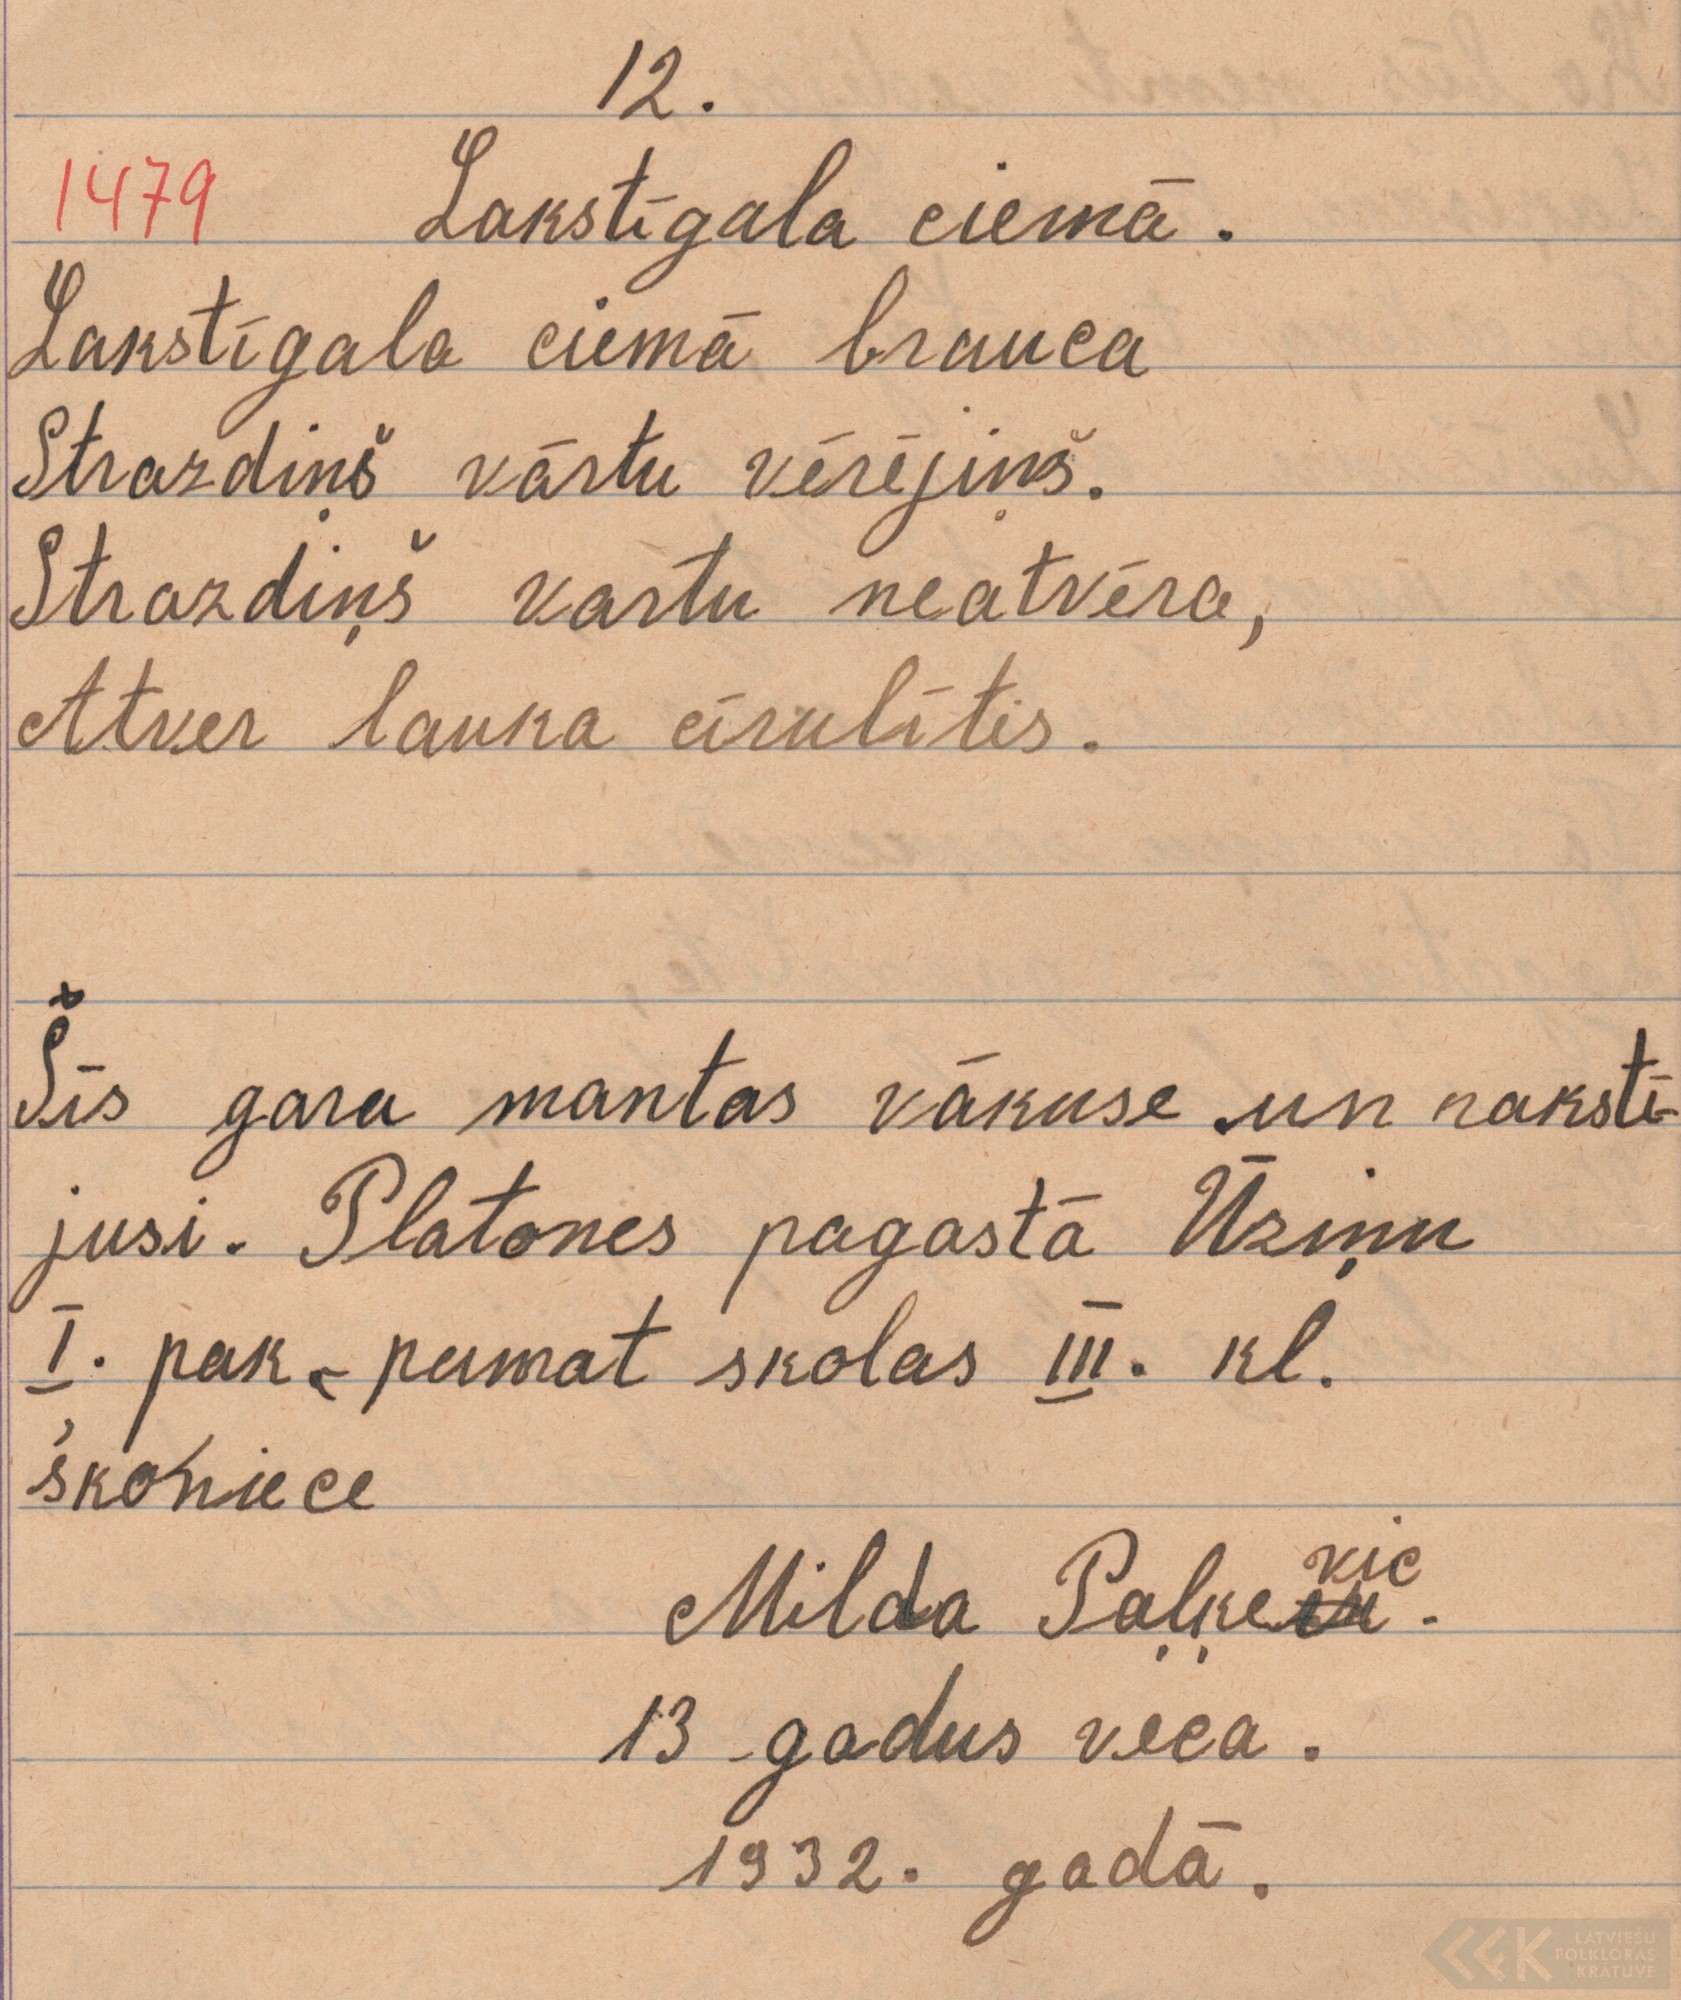 12.
1479
Lakstīgala ciemā.
Lakstīgala ciemā brauca
Strazdiņš vārtu vērējiņš.
Strazdiņš vartu neatvēra,
Atver lauka cīrulītis.
Šīs gara mantas vākuse un rakstī-
jusi. Platones pagastā Ūziņu
I. pak. pumat skolas III. kl.
skolniece
Milda Paļķevic.
13 gadus veca.
1932. gadā.
LATVIEŠU
FOLKLORAS
KRĀTUVE